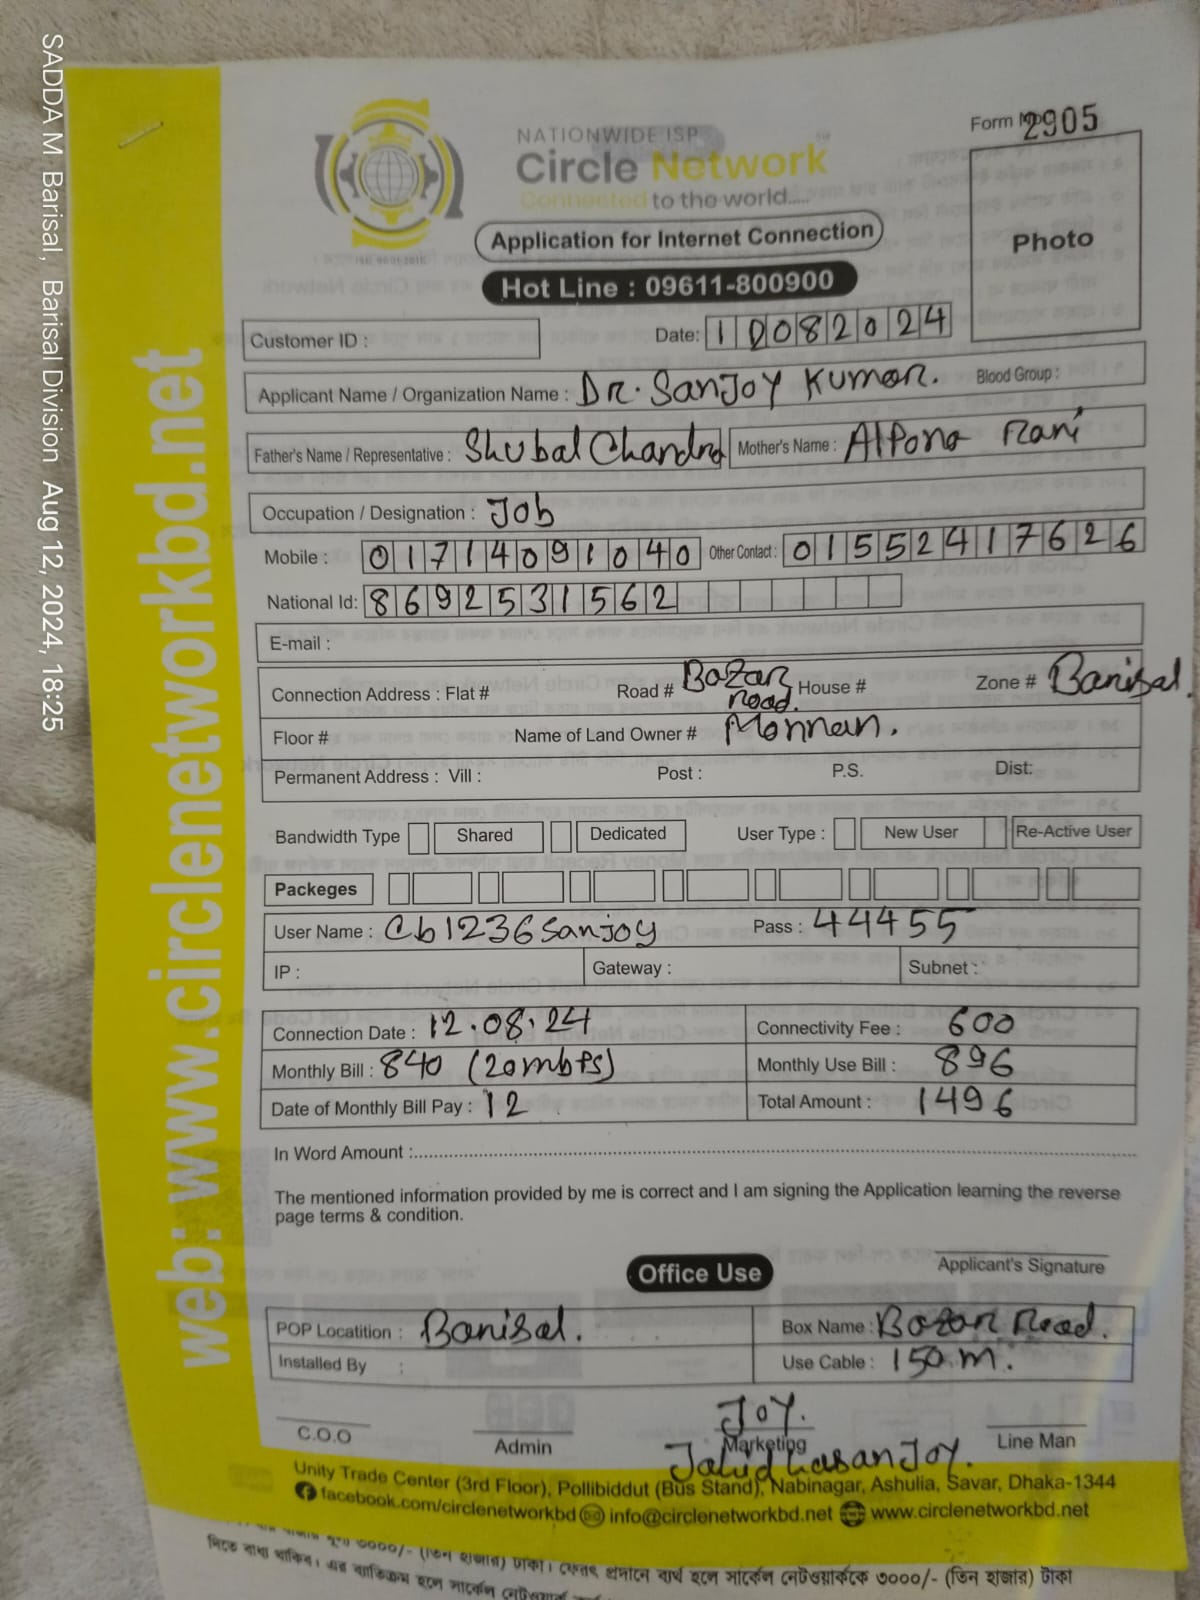 SADDA M Barisal, Barisal Division Aug 12, 2024, 18:25
web: www.circlenetworkbd.net
Form No 2905
NATIONWIDE ISP
Circle Network
Connected to the world.....
Photo
Application for Internet Connection
Hot Line : 09611-800900
Customer ID :
Date: 10082024
Applicant Name / Organization Name : DR. Sanjoy Kumar. Blood Group :
Father's Name / Representative : Shubal Chandra Mother's Name : Alpona Rani
Occupation / Designation : Job
Mobile : 01714091040 Other Contact : 01552417626
National Id: 8692531562
E-mail :
Connection Address : Flat # Road # Bazar Road. House # Zone # Barisal.
Floor # Name of Land Owner # Monnan.
Permanent Address : Vill : Post : P.S. Dist:
Bandwidth Type Shared Dedicated User Type : New User Re-Active User
Packeges
User Name : Cb1236sanjoy Pass : 44455
IP : Gateway : Subnet :
Connection Date : 12.08.24 Connectivity Fee : 600
Monthly Bill : 840 (20mbps) Monthly Use Bill : 896
Date of Monthly Bill Pay : 12 Total Amount : 1496
In Word Amount :
The mentioned information provided by me is correct and I am signing the Application learning the reverse
page terms & condition.
Applicant's Signature
Office Use
POP Locatition : Barisal. Box Name : Bazar Road.
Installed By : Use Cable : 150 m.
Joy.
C.O.O Admin Marketing Line Man
Jahid hasan Joy.
Unity Trade Center (3rd Floor), Pollibiddut (Bus Stand), Nabinagar, Ashulia, Savar, Dhaka-1344
facebook.com/circlenetworkbd info@circlenetworkbd.net www.circlenetworkbd.net
৩০০০/- (তিন হাজার) টাকা। ফেরৎ প্রদানে ব্যর্থ হলে সার্কেল নেটওয়ার্ককে ৩০০০/- (তিন হাজার) টাকা
দিতে বাধ্য থাকিব। এর ব্যতিক্রম হলে সার্কেল